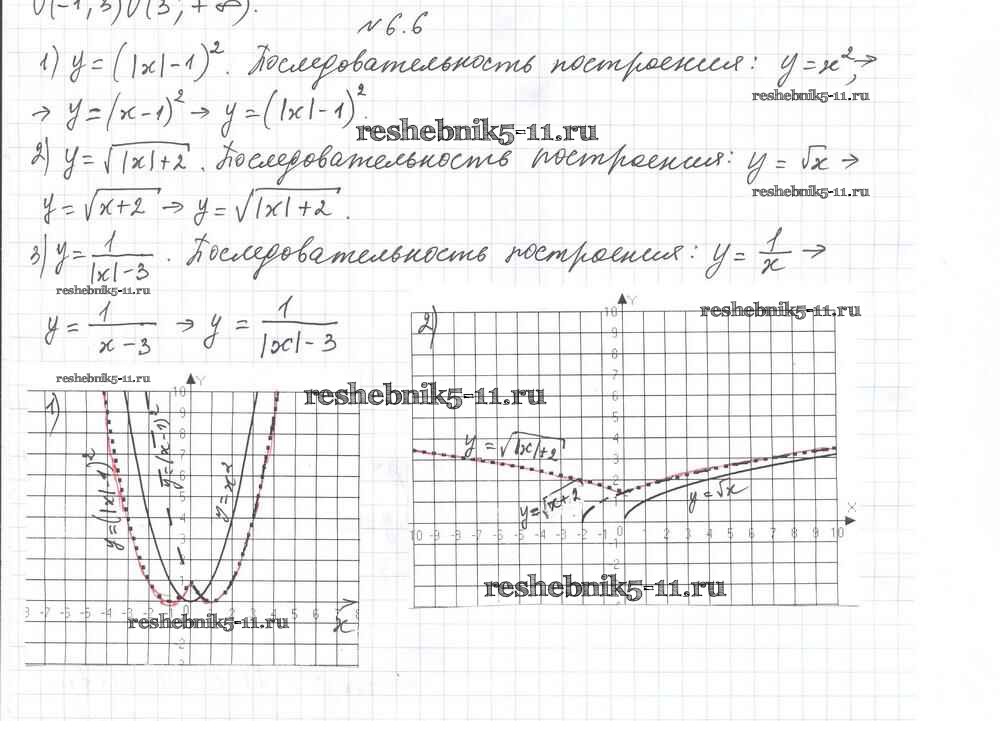 ∪(-1; 3)∪(3; +∞).
№6.6
1) y=(|x|-1)². Последовательность построения: y=x², →
reshebnik5-11.ru
→ y=(x-1)² → y=(|x|-1)².
reshebnik5-11.ru
2) y=√(|x|+2). Последовательность построения: y=√x →
reshebnik5-11.ru
y=√(x+2) → y=√(|x|+2).
3) y=1/(|x|-3). Последовательность построения: y=1/x →
reshebnik5-11.ru
y=1/(x-3) → y=1/(|x|-3)
reshebnik5-11.ru
reshebnik5-11.ru
reshebnik5-11.ru
1)
Y
10
y=(|x|-1)²
y=(x-1)²
y=x²
-7 -6 -5 -4 -3 -2 -1 0 1 2 3 4 5 6 7 8
x
reshebnik5-11.ru
2)
Y
10
y=√(|x|+2)
y=√(x+2)
y=√x
X
-10 -9 -8 -7 -6 -5 -4 -3 -2 -1 0 1 2 3 4 5 6 7 8 9 10
reshebnik5-11.ru